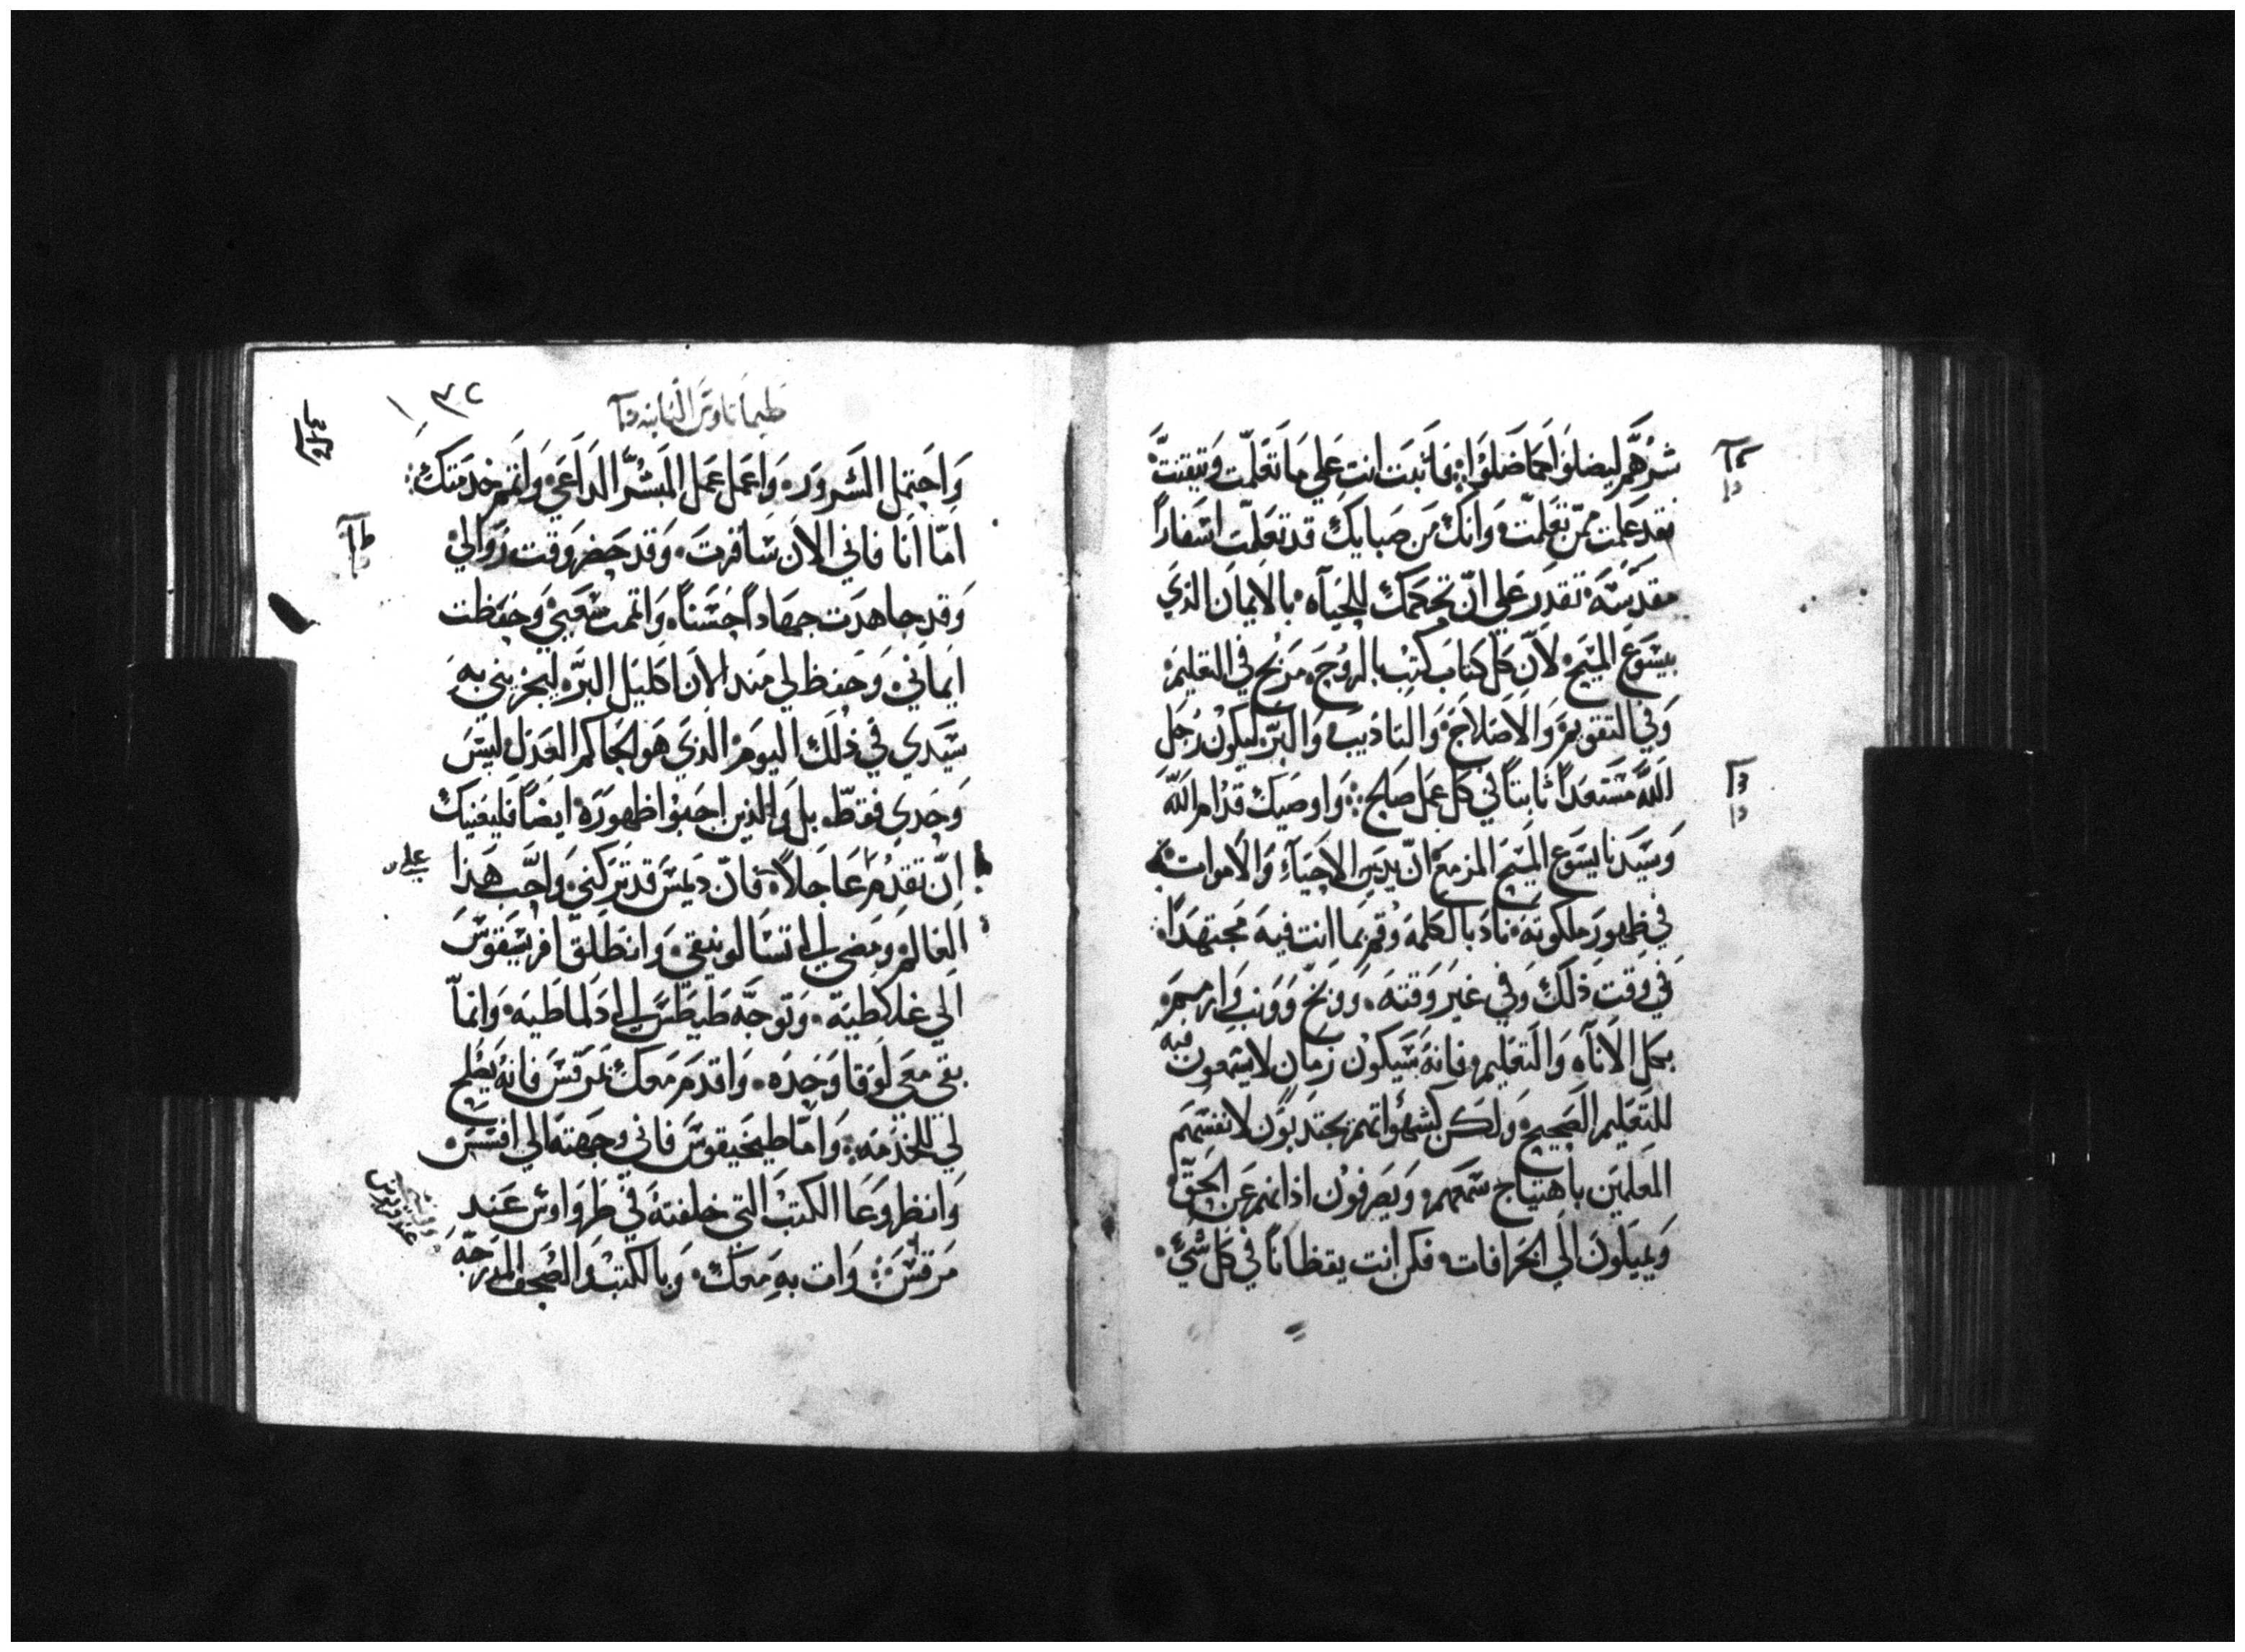 شرهم ليضلوا كما ضلوا فاثبت انت علي ما تعلمت وتيقنت
فقد علمت ممن تعلمت وانك من صبايك قد تعلمت اسفاراً
مقدسه تقدر علي ان تحكمك للحياه بالايمان الذي
بيسوع المسيح لان كل كتاب كتب بالروح مربح في التعليم
وفي التقويم والاصلاح والتاديب والبر ليكون رجل
الله مستعداً ثابتاً في كل عمل صالح واوصيك قدام الله
وسيدنا يسوع المسيح المزمع ان يدين الاحياء والاموات
في ظهور ملكوته ناد بالكلمه وقم بما انت فيه مجتهداً
في وقت ذلك وفي غير وقته ووبخ وونب وازجر
بكل الاناه والتعليم فانه سيكون زمان لا يسمعون فيه
للتعليم الصحيح ولكن كشهواتهم يجتدبون لانفسهم
المعلمين باهتياج سمعهم ويصرفون اذانهم عن الحق
ويميلون الي الخرافات فكن انت يقظاناً في كل شي
طيماتاوس الثانيه
واحتمل الشرور واعمل عمل المبشر الداعي واتم خدمتك
اما انا فاني الان سافرت وقد حضر وقت زوالي
وقد جاهدت جهاداً حسناً واتممت سعيي وحفظت
ايماني وحفظ لي مند الان اكليل البر ليجزيني به
سيدي في ذلك اليوم الذي هو الحاكم العدل ليس
وحدي فقط بل والذين احبوا ظهوره ايضاً فليعنيك
ان تقدم عاجلاً فان ديمس قد تركني واحب هذا
العالم ومضي الي تسالونيقي وانطلق اقريسقوس
الي غلاطيه وتوجه طيطس الي دلماطيه وانما
بقي معي لوقا وحده واقدم معك بمرقس فانه يصلح
لي للخدمه واما طيخيقوس فاني وجهته الي افسس
وانظر وعا الكتب التي خلفته في طرواوس عند
مرقس وات به معك وبالكتب والصحف المدرجه